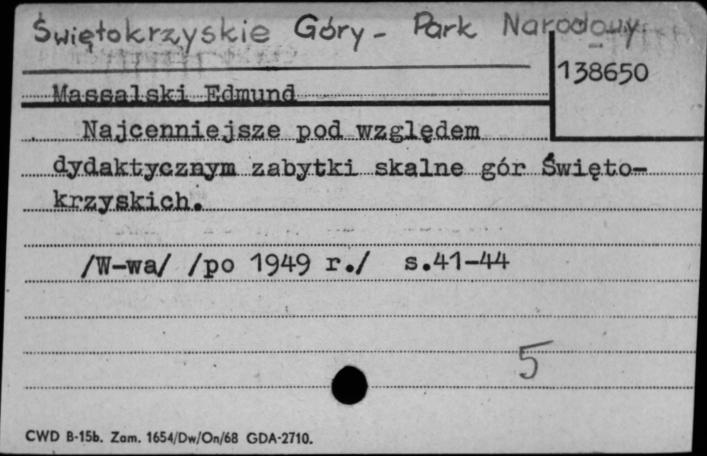 Świętokrzyskie Góry - Park Narodowy
138650
Massalski Edmund
Najcenniejsze pod względem
dydaktycznym zabytki skalne gór Święto-
krzyskich.
/W-wa/ /po 1949 r./ s.41-44
5
CWD B-15b. Zam. 1654/Dw/On/68 GDA-2710.